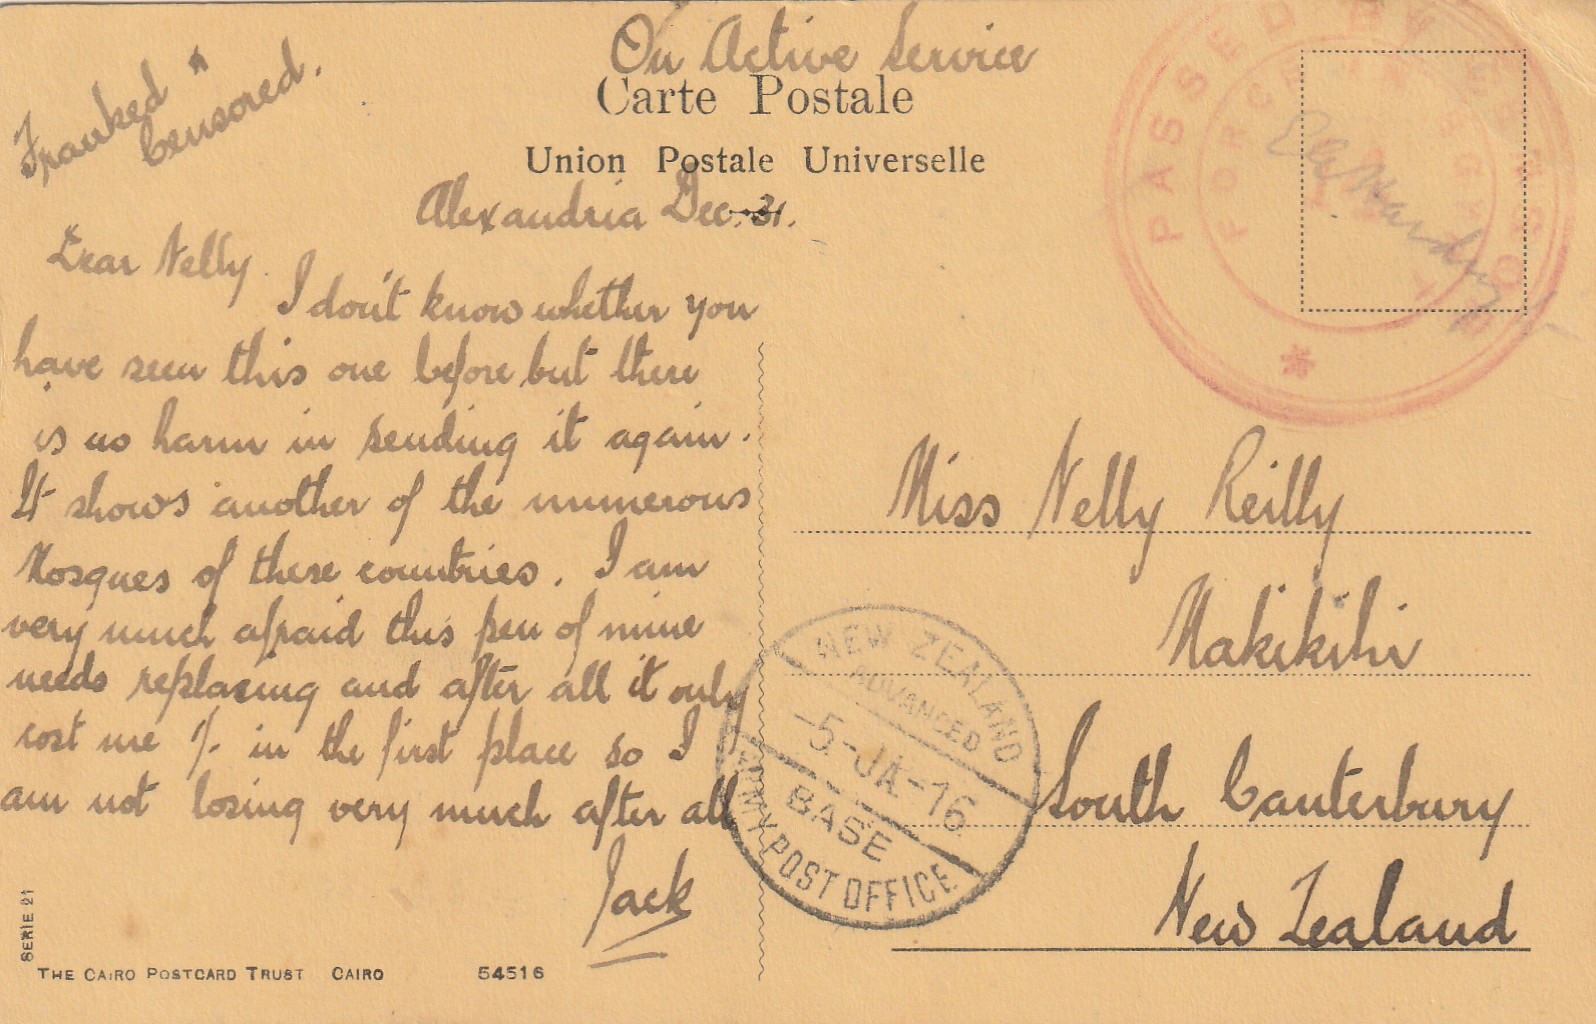 On Active Service
Franked &
Censored.
Carte Postale
Union Postale Universelle
Alexandria Dec. 31.
Dear Nelly
I don't know whether you
have seen this one before but there
is no harm in sending it again.
It shows another of the numerous
Mosques of these countries. I am
very much afraid this pen of mine
needs replacing and after all it only
cost me 1/- in the first place so I
am not losing very much after all
Jack
SERIE 21
THE CAIRO POSTCARD TRUST CAIRO 54516
PASSED BY CENSOR
FORCE IN EGYPT
Miss Nelly Reilly
Makikihi
South Canterbury
New Zealand
NEW ZEALAND
ADVANCED
-5.-JA-16
BASE
ARMY POST OFFICE